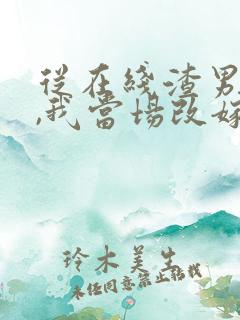 從在綫渣男
,我當場改嫁
玲木美生
未經同意禁止轉載